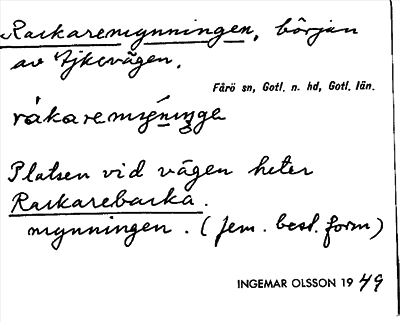 Rackaremynningen, början
av Ajkevägen.
Fårö sn, Gotl. n. hd, Gotl. län.
Platsen vid vägen heter
Rackarebacka.
mynningen. (fem. best. form)
INGEMAR OLSSON 19 49